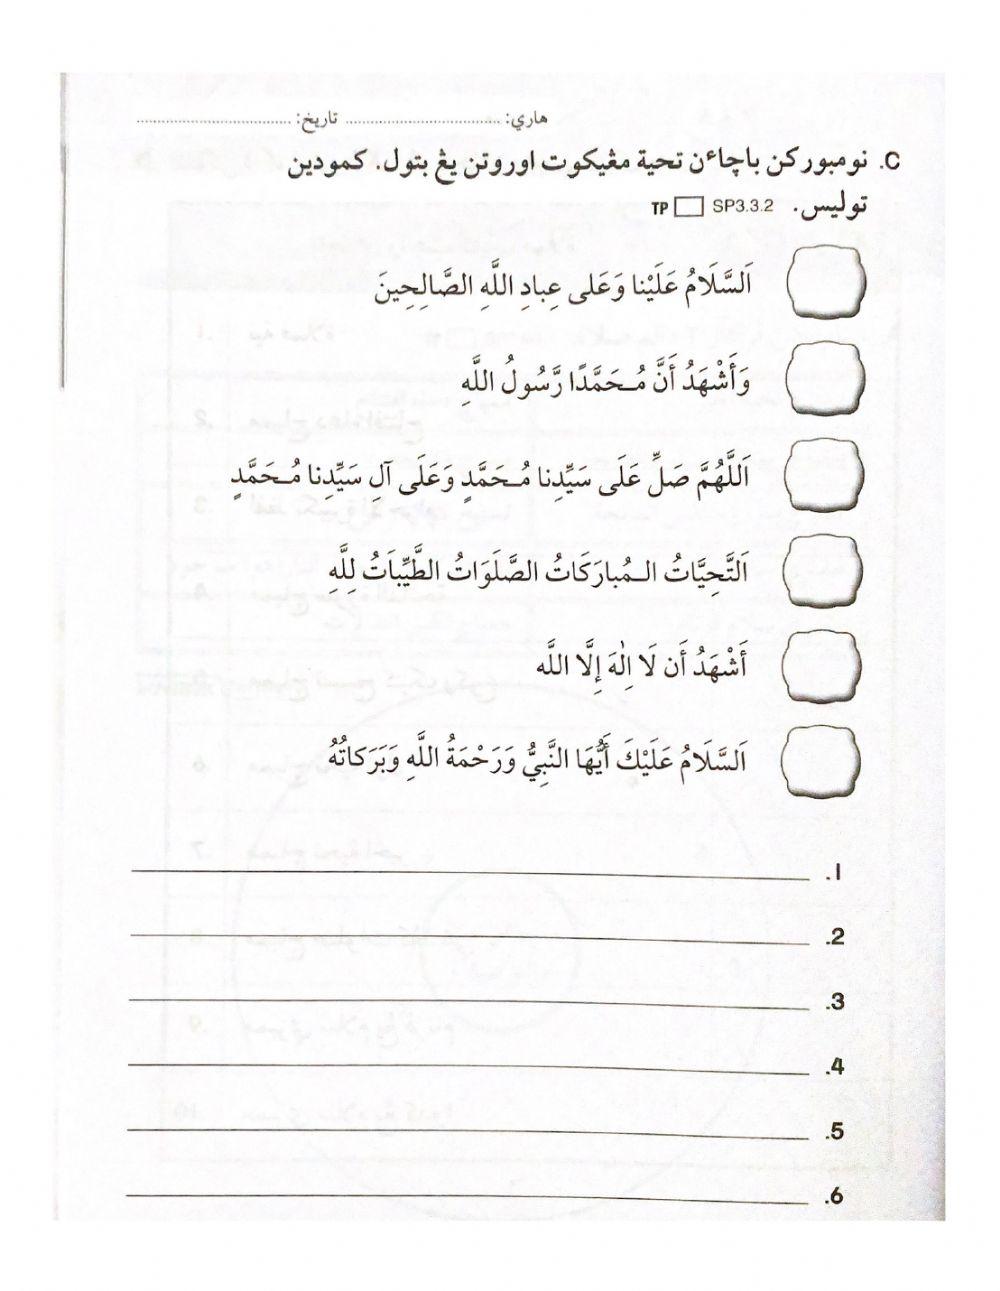 هاري: ........................ تاريخ: ........................
C. نومبوركن باچاءن تحية مڠيكوت اوروتن يڠ بتول. كمودين
توليس. SP3.3.2 TP
اَلسَّلَامُ عَلَيْنا وَعَلى عِبادِ اللَّهِ الصَّالِحِينَ
وَأَشْهَدُ أَنَّ مُـحَمَّدًا رَّسُولُ اللَّهِ
اَللَّهُمَّ صَلِّ عَلَى سَيِّدِنا مُـحَمَّدٍ وَعَلَى آلِ سَيِّدِنا مُـحَمَّدٍ
اَلتَّحِيَّاتُ الـمُبارَكَاتُ الصَّلَوَاتُ الطَّيِّبَاتُ لِلَّهِ
أَشْهَدُ أَن لَا اِلٰهَ إِلَّا اللَّه
اَلسَّلَامُ عَلَيْكَ أَيُّهَا النَّبِيُّ وَرَحْمَةُ اللَّهِ وَبَرَكاتُهُ
1.
2.
3.
4.
5.
6.